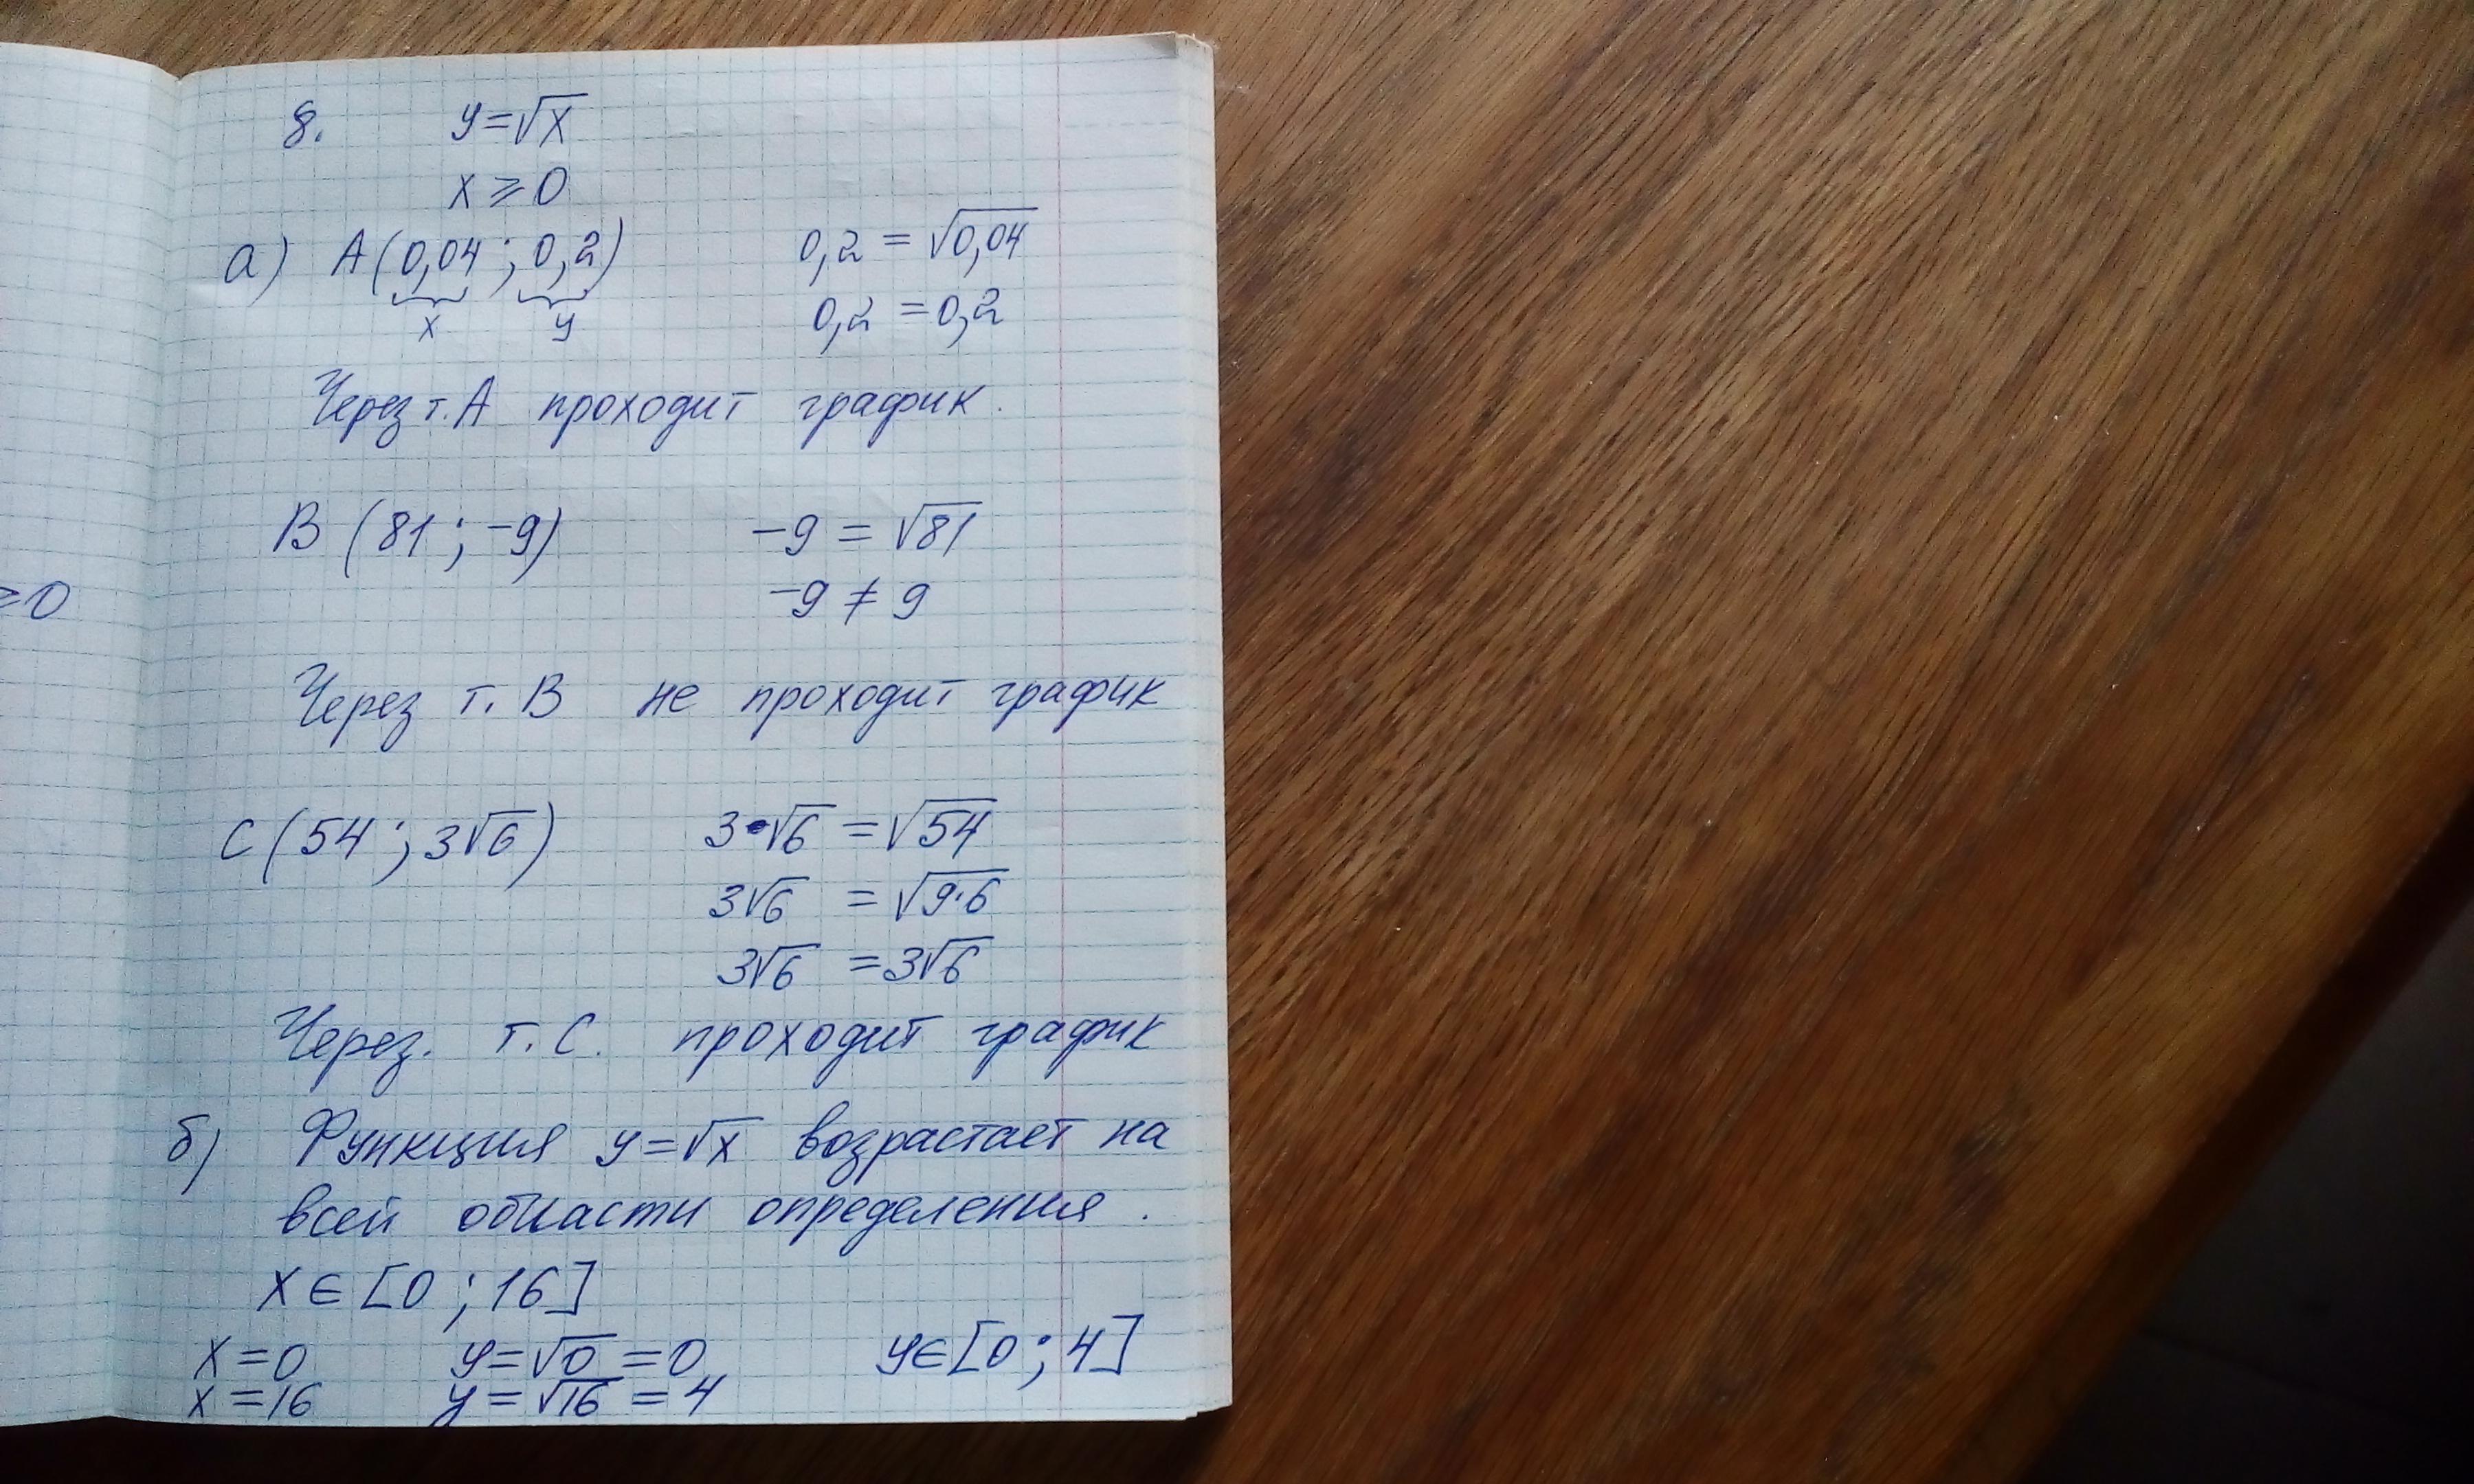 8. y=√x
x ⩾ 0
а) A(0,04 ; 0,2) 0,2 = √0,04
x y 0,2 = 0,2
Через т.А проходит график.
B (81 ; -9) -9 = √81
-9 ≠ 9
⩾0
Через т. В не проходит график
C (54 ; 3√6) 3·√6 = √54
3√6 = √9·6
3√6 = 3√6
Через. т. С. проходит график
б) Функция y=√x возрастает на
всей области определения.
x ∈ [0 ; 16]
x = 0 y = √0 = 0 y ∈ [0 ; 4]
x = 16 y = √16 = 4